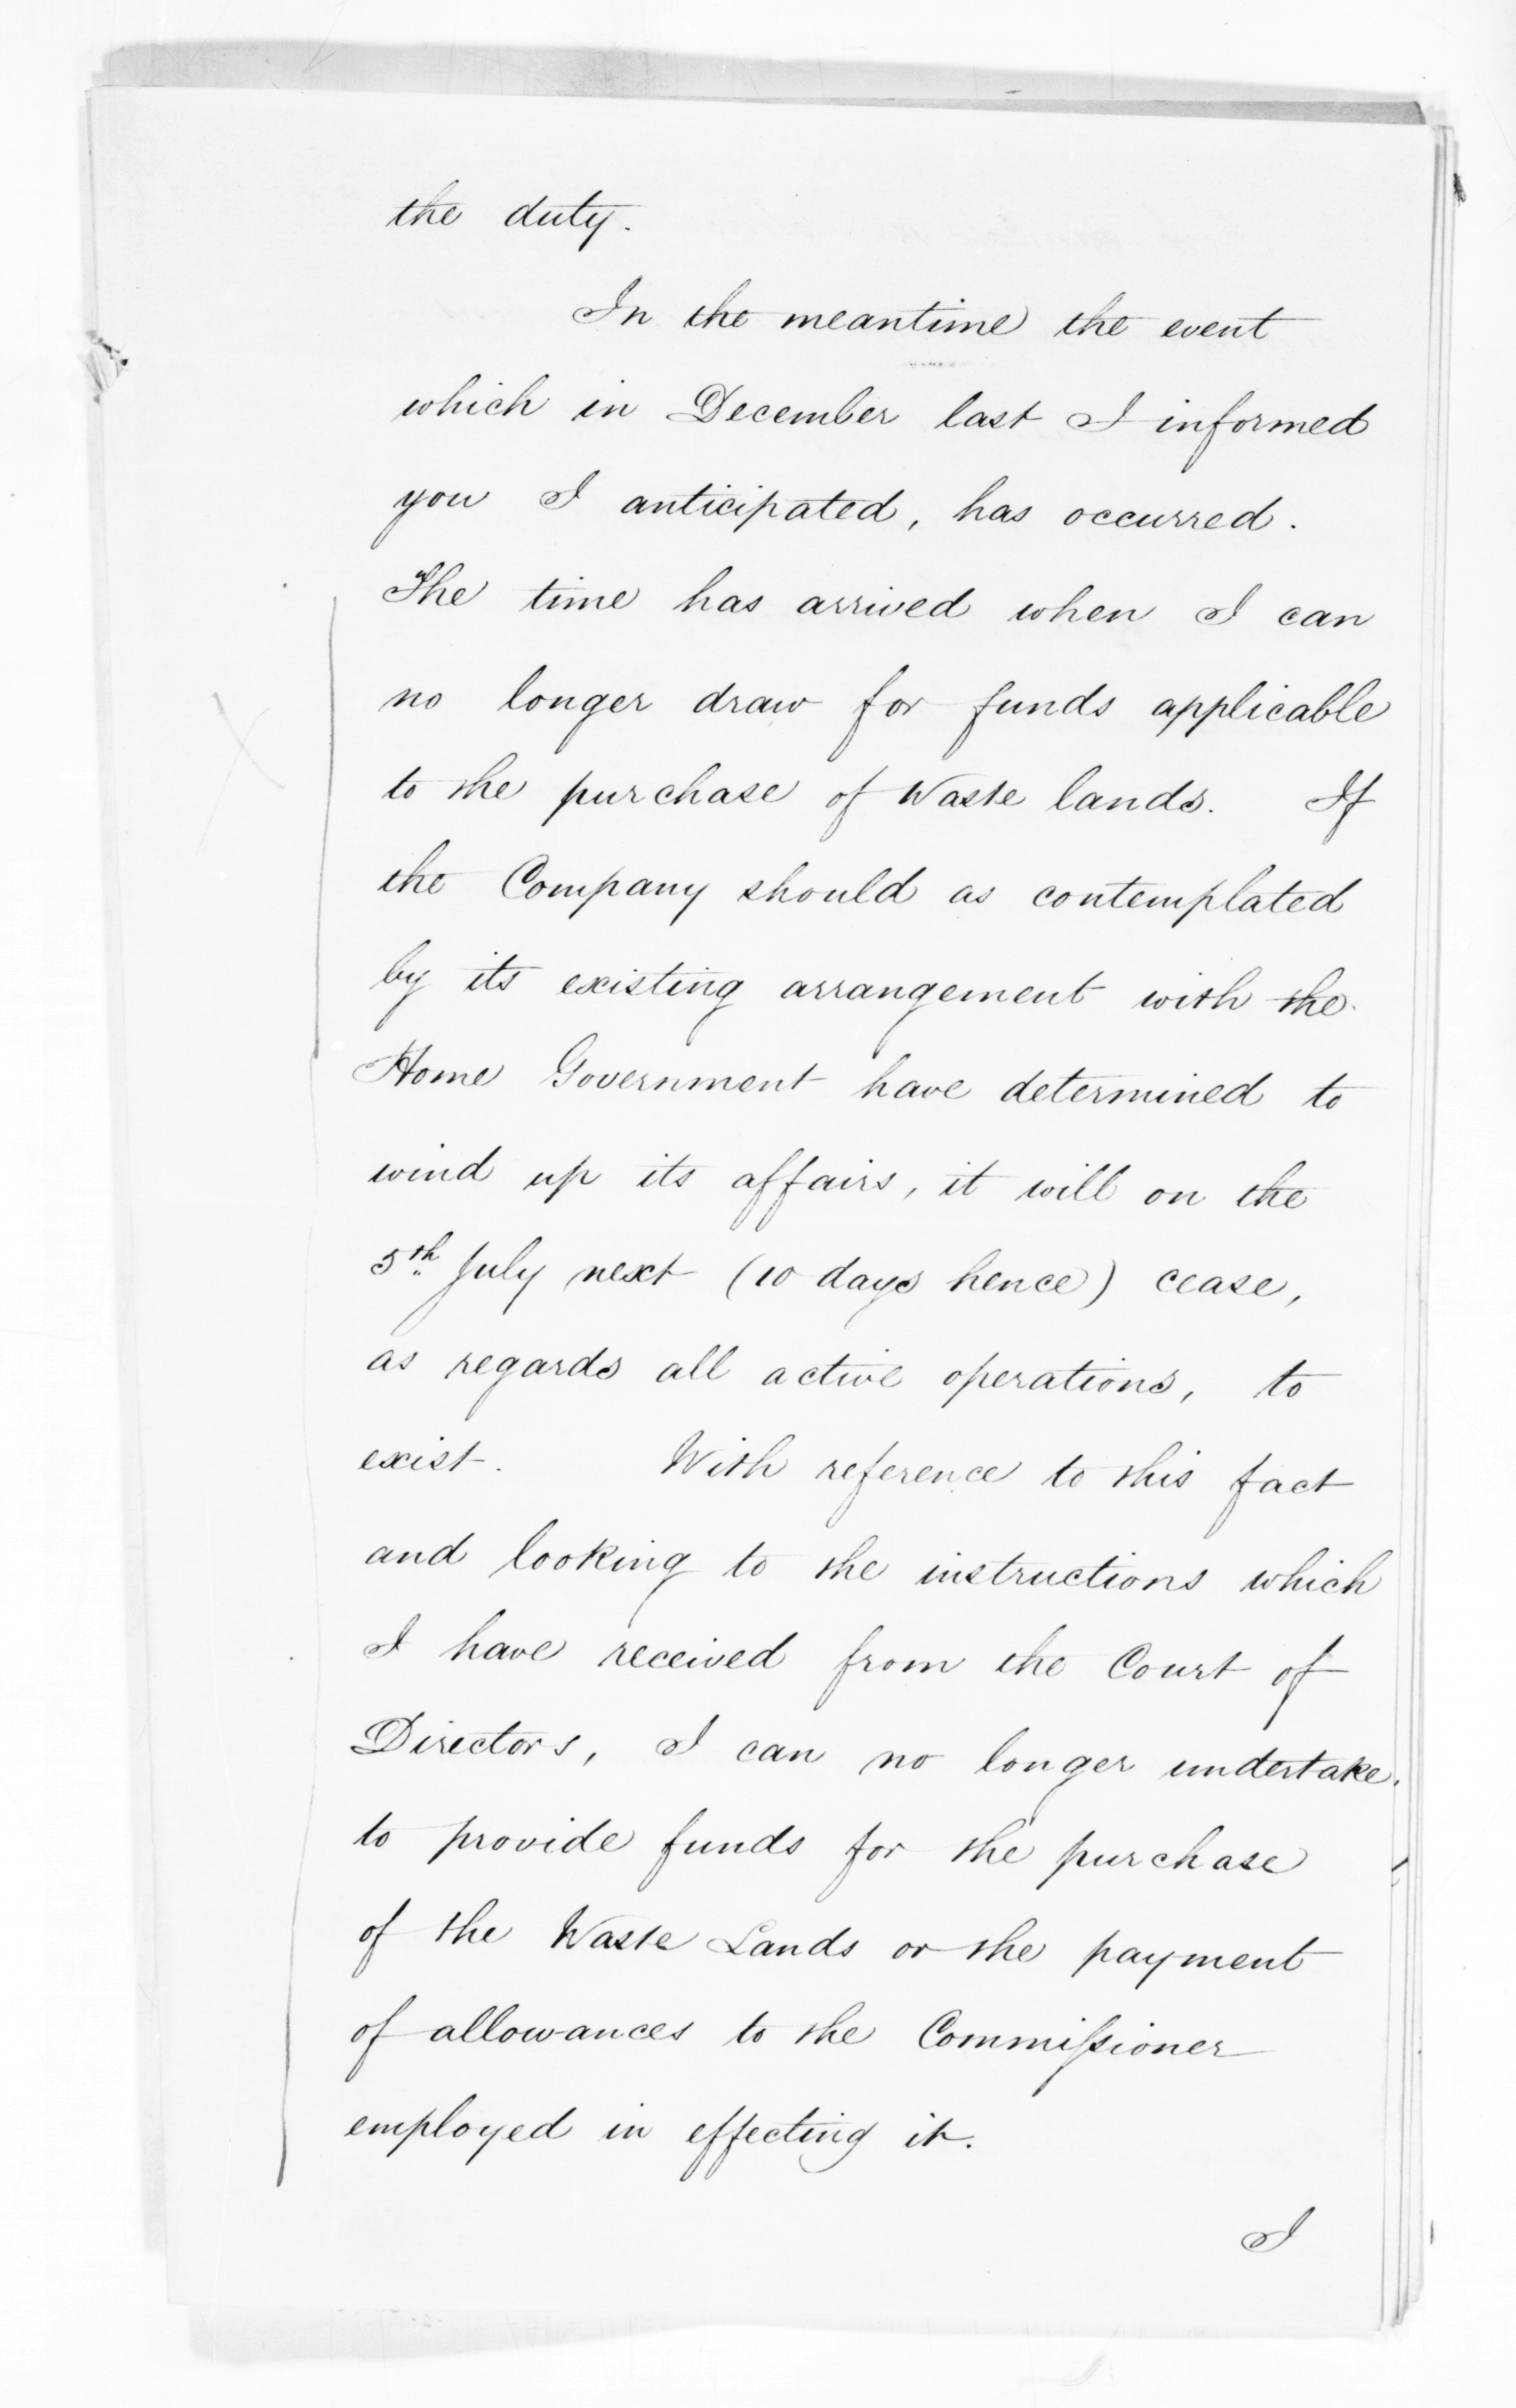 the duty.
In the meantime the event
which in December last I informed
you I anticipated, has occurred.
The time has arrived when I can
no longer draw for funds applicable
to the purchase of Waste lands. If
the Company should as contemplated
by its existing arrangement with the
Home Government have determined to
wind up its affairs, it will on the
5th July next (10 days hence) cease,
as regards all active operations, to
exist. With reference to this fact
and looking to the instructions which
I have received from the Court of
Directors, I can no longer undertake
to provide funds for the purchase
of the Waste Lands or the payment
of allowances to the Commiſsioner
employed in effecting it.
I